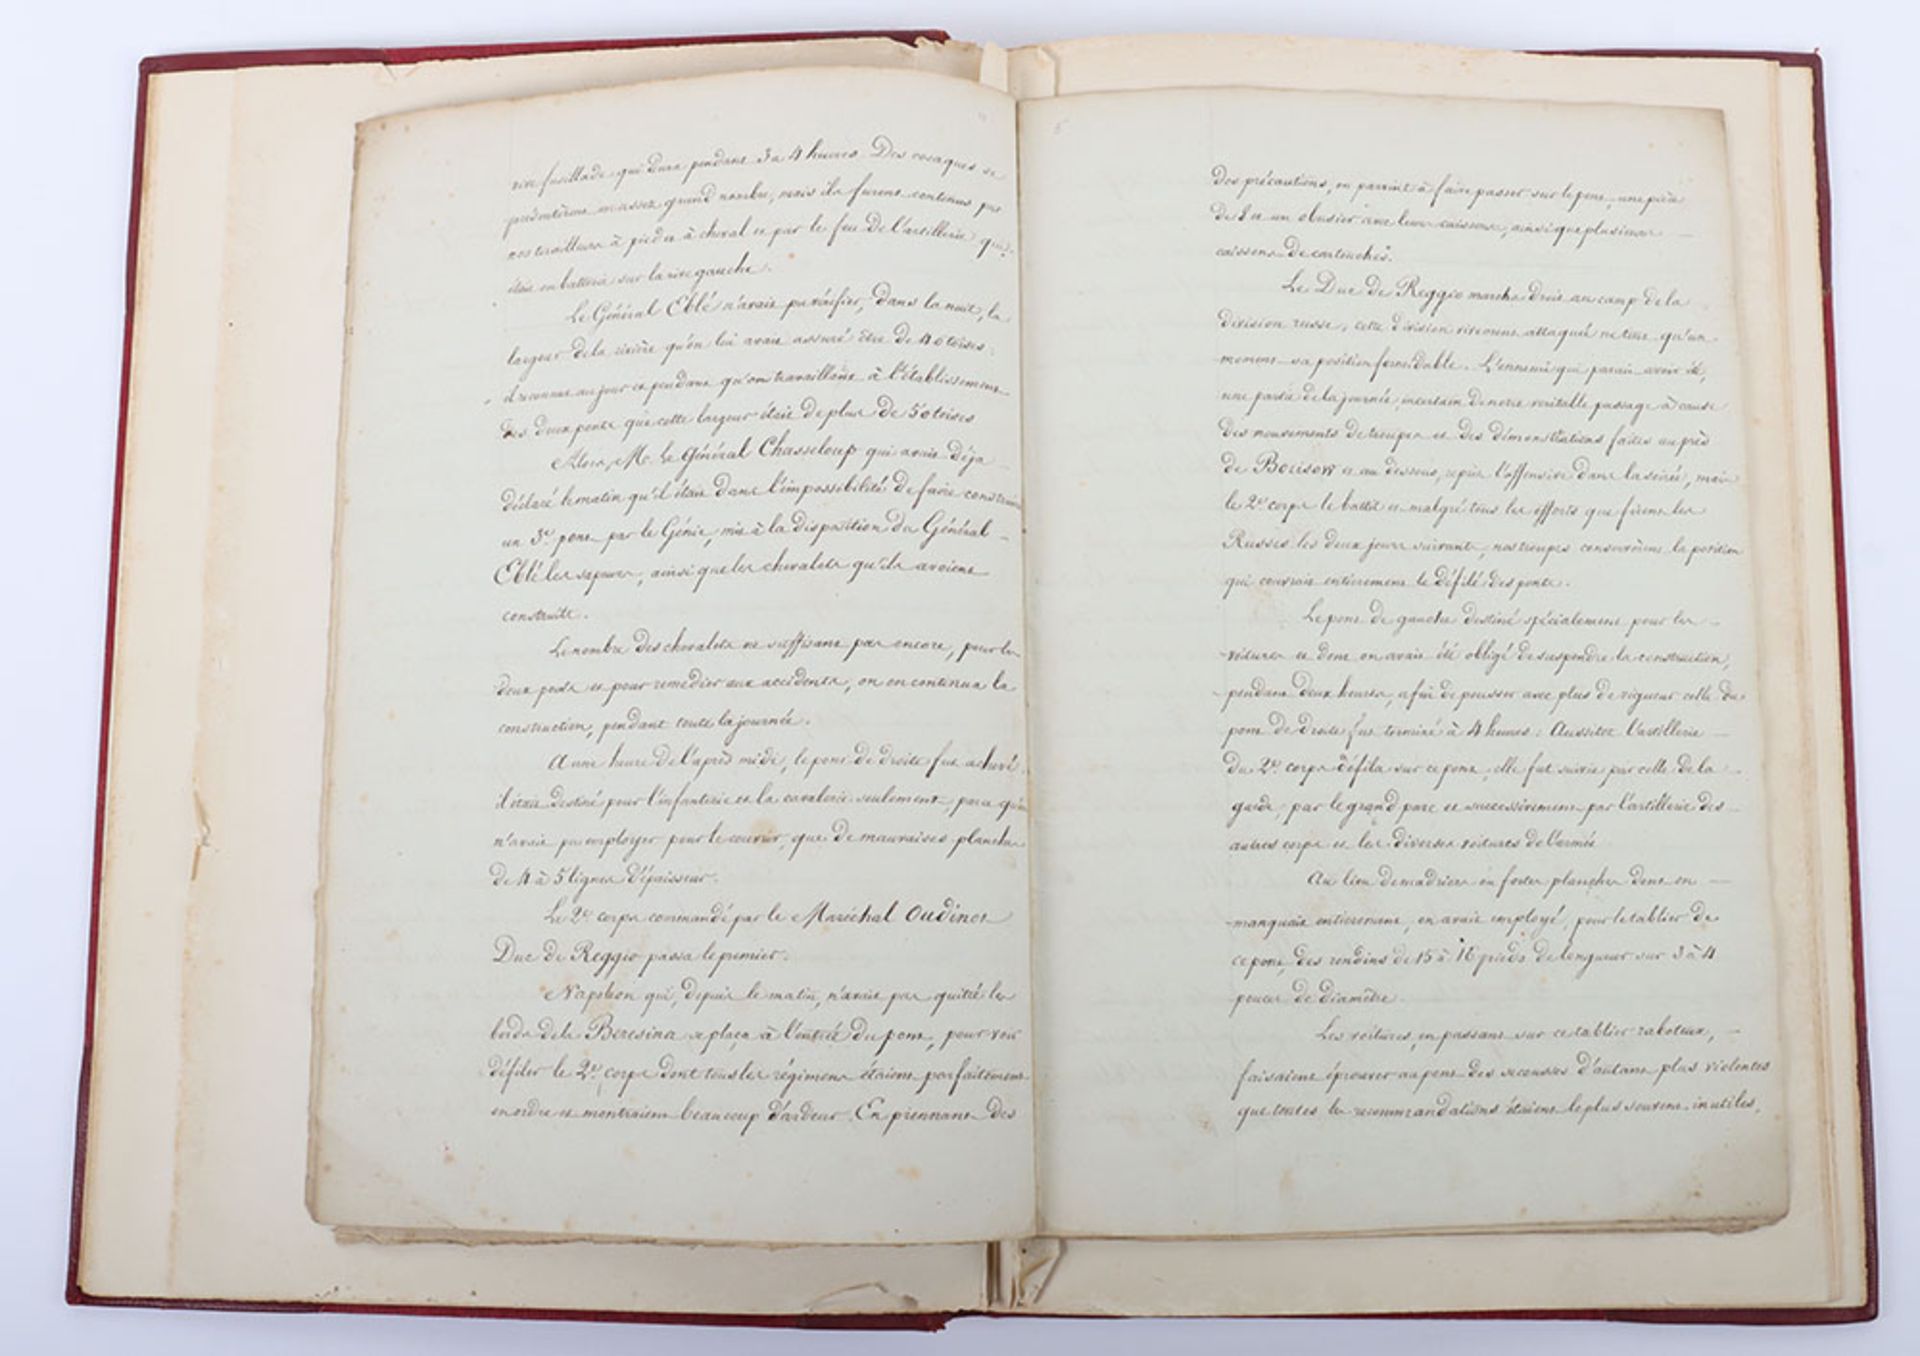 vive fusillade qui dura pendant 3 à 4 heures. Des cosaques se
présentèrent en assez grand nombre, mais ils furent contenus par
nos tirailleurs à pied et à cheval et par le feu de l'artillerie qui
était en batterie sur la rive gauche.
Le Général Eblé n'avait pu vérifier, dans la nuit, la
largeur de la rivière qu'on lui avait assuré être de 40 toises.
il reconnut au jour et pendant qu'on travaillait à l'établissement
des deux ponts que cette largeur était de plus de 50 toises
Alors, Mr. Le Général Chasseloup qui avait déja
déclaré le matin qu'il était dans l'impossibilité de faire construire
un 3e. pont par le Génie, mit à la disposition du Général
Eblé les sapeurs, ainsi que les chevalets qu'ils avoient
construits.
Le nombre des chevalets ne suffisant pas encore, pour les
deux ponts et pour remedier aux accidents, on en continua la
construction, pendant toute la journée.
A une heure de l'après midi, le pont de droite fut achevé.
il était destiné pour l'infanterie et la cavalerie seulement, parce qu'on
n'avait pu employer pour le couvrir, que de mauvaises planches
de 4 à 5 lignes d'épaisseur.
Le 2e. corps commandé par le Maréchal Oudinot
Duc de Reggio passa le premier.
Napoléon qui, depuis le matin, n'avait pas quitté les
bords de la Beresina se plaça à l'entrée du pont, pour voir
défiler le 2e. corps dont tous les régimens étaient parfaitement
en ordre et montraient beaucoup d'ardeur. En prennant des
5
des précautions, on parvint à faire passer sur le pont, une pièce
de 8 et un obusier avec leurs caissons, ainsi que plusieurs
caissons de cartouches.
Le Duc de Reggio marcha droit au camp de la
division russe, cette division vivement attaquée ne tint qu'un
moment sa position formidable. L'ennemi qui parait avoir été,
une partie de la journée, incertain de notre veritable passage à cause
des mouvements de troupes et des démonstrations faites au près
de Borisow et au dessous, reprit l'offensive dans la soirée, mais
le 2e. corps le battit et malgré tous les efforts que firent les
Russes les deux jours suivants, nos troupes conservèrent la position
qui couvrait entierement le défilé des ponts.
Le pont de gauche destiné spécialement pour les
voitures et dont on avait été obligé de suspendre la construction,
pendant deux heures, afin de pousser avec plus de vigueur celle du
pont de droite fut terminé à 4 heures: Aussitot l'artillerie
du 2e. corps défila sur ce pont, elle fut suivie par celle de la
garde, par le grand parc et successivement par l'artillerie des
autres corps et les diverses voitures de l'armée
Au lieu de madriers ou fortes planches dont on
manquait entierement, on avait employé, pour le tablier de
ce pont, des rondins de 15 à 16 pieds de longueur sur 3 à 4
pouces de diamètre.
Les voitures, en passant sur ce tablier raboteux,
faisaient éprouver au pont des secousses d'autant plus violentes
que toutes les recommandations étaient le plus souvent inutiles,